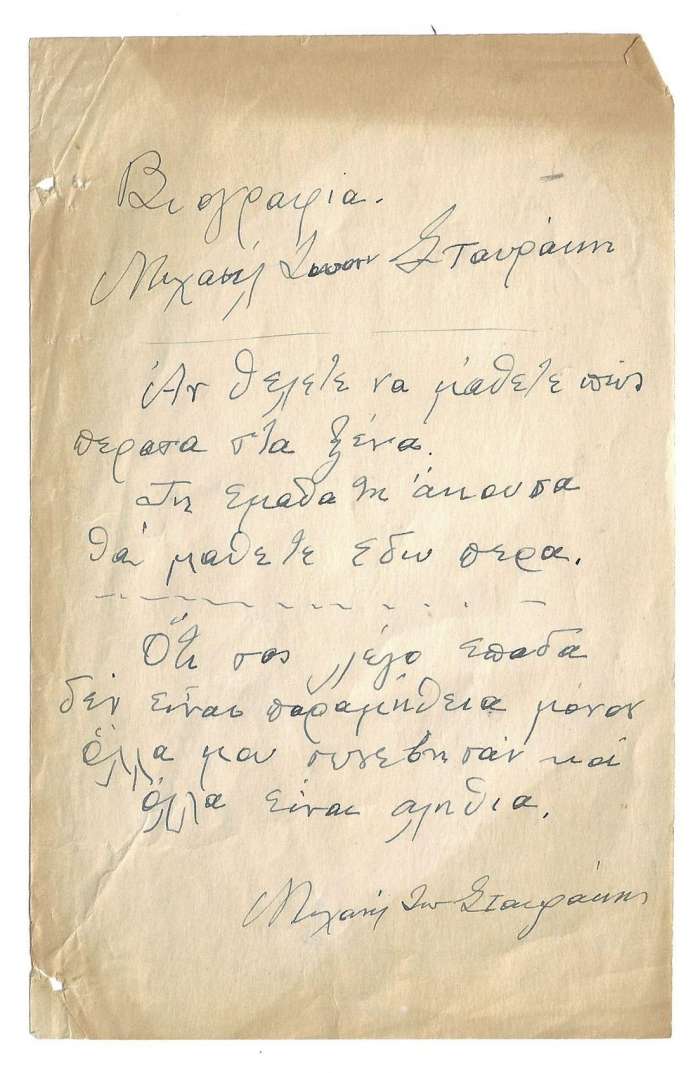 Βιογραφία.
Μιχαήλ Σταυράκη
Άν θελετε να μάθετε πως
περασα στα ξένα.
Τη εμαθα τη άκουσα
θά μαθετε εδω περα.
Ότι σας λέγο επαδα
δέν είναι παραμήθεια μόνον
όλλα μου συνεβησαν κα
όλλα είναι αληθια.
Μιχαήλ Σταυράκης